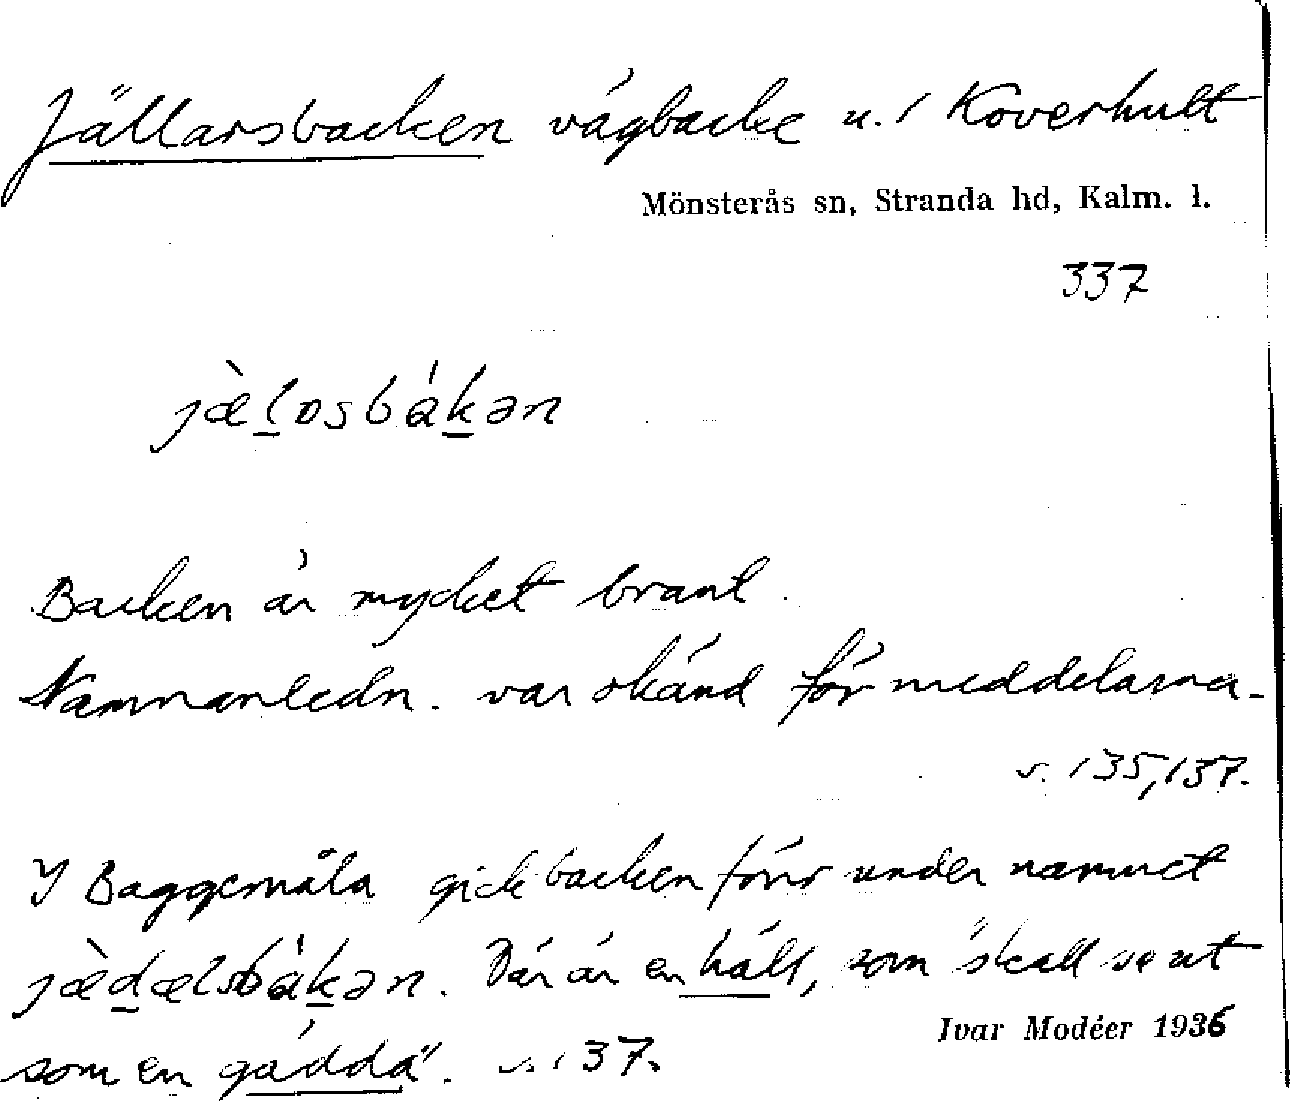 Jällarsbacken vägbacke u. / Koverhult
Mönsterås sn, Stranda hd, Kalm. l.
337
jæ̀l̲ɒsbák̲ən
Backen är mycket brant.
Namnanledn. var okänd för meddelarna.
s. 135, 137.
I Baggemåla gick backen förr under namnet
jæ̀d̲ælsbák̲ən. Där är en häll, som "skall se ut
som en gädda". s. 137.
Ivar Modéer 1936